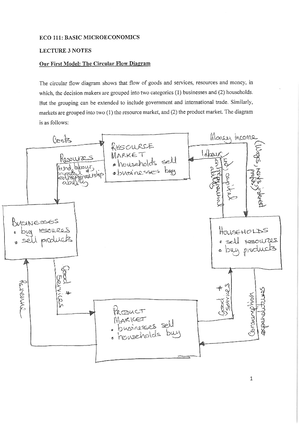 ECO 111: BASIC MICROECONOMICS
LECTURE 3 NOTES
Our First Model: The Circular Flow Diagram
The circular flow diagram shows that flow of goods and services, resources and money, in
which, the decision makers are grouped into two categories (1) businesses and (2) households.
But the grouping can be extended to include government and international trade. Similarly,
markets are grouped into two (1) the resource market, and (2) the product market. The diagram
is as follows:
Costs
RESOURCE
MARKET
• households sell
• businesses buy
Money income
Resources
Labour
BUSINESSES
• buy resources
• sell products
HOUSEHOLDS
• sell resources
• buy products
Revenue
Good +
Services
Good +
Services
Consumption
expenditures
PRODUCT
MARKET
• businesses sell
• households buy
1